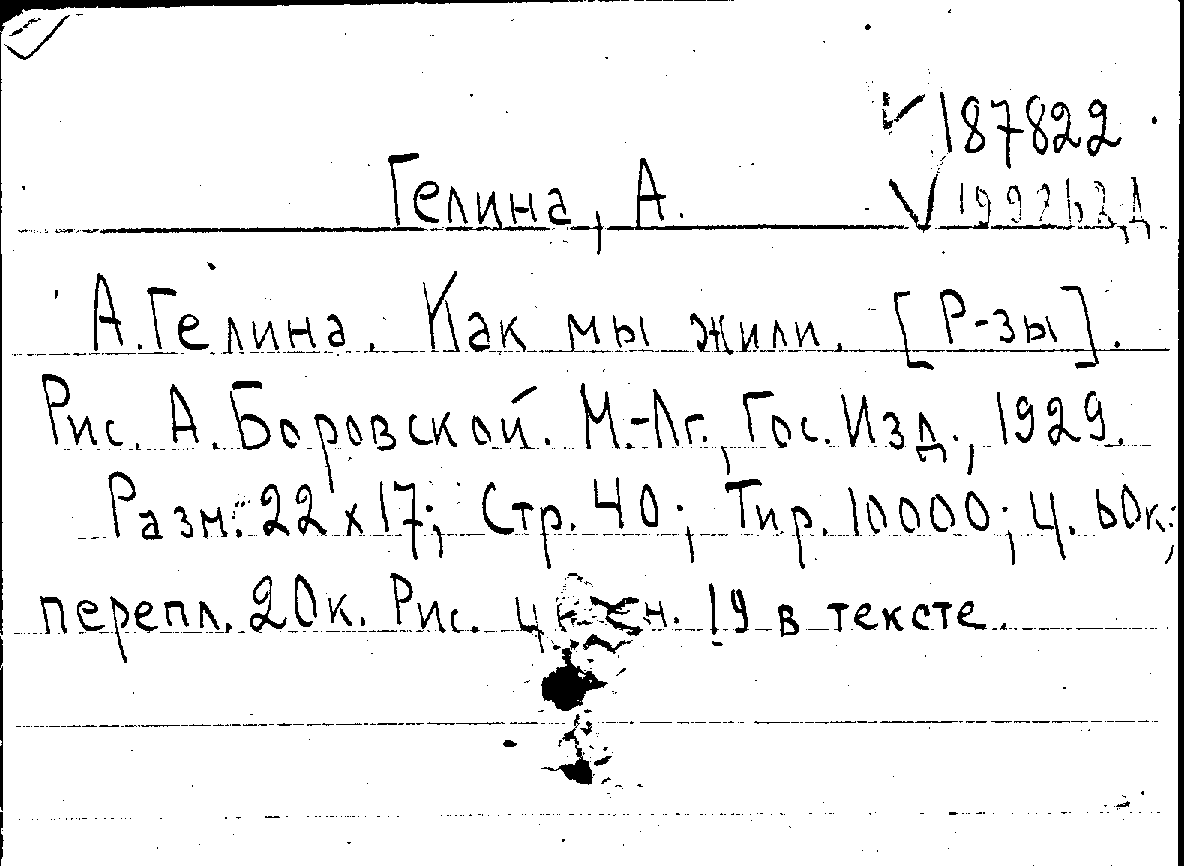 187822
Гелина, А.
А. Гелина. Как мы жили. [Р-зы].
Рис. А. Боровской. М.-Лг., Гос. Изд., 1929.
Разм. 22х17; Стр. 40; Тир. 10000; Ц. 60к.;
перепл. 20к. Рис. 19 в тексте.